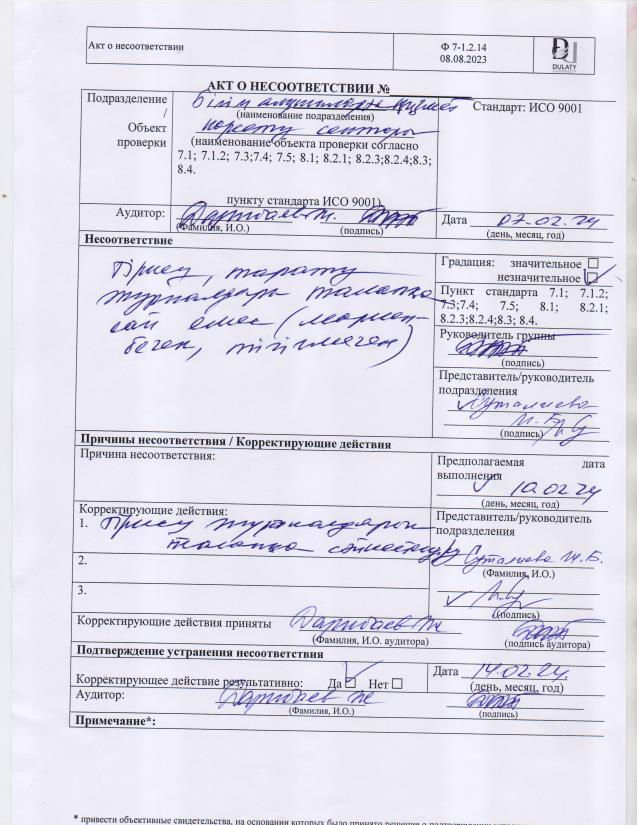 Акт о несоответствии
Ф 7-1.2.14
08.08.2023
DULATY
АКТ О НЕСООТВЕТСТВИИ №
Подразделение
/
Объект
проверки
Білім алушыларға қызмет
(наименование подразделения)
көрсету секторы
(наименование объекта проверки согласно
7.1; 7.1.2; 7.3;7.4; 7.5; 8.1; 8.2.1; 8.2.3;8.2.4;8.3;
8.4.
пункту стандарта ИСО 9001)
Стандарт: ИСО 9001
Аудитор:
(Фамилия, И.О.)
(подпись)
Дата 07.02.24
(день, месяц, год)
Несоответствие
Тіркеу, тарату
журналдары талапқа
сай емес (
тігілмеген)
Градация: значительное
незначительное
Пункт стандарта 7.1; 7.1.2;
7.3;7.4; 7.5; 8.1; 8.2.1;
8.2.3;8.2.4;8.3; 8.4.
Руководитель группы
(подпись)
Представитель/руководитель
подразделения
(подпись)
Причины несоответствия / Корректирующие действия
Причина несоответствия:
Предполагаемая дата
выполнения
10.02.24
(день, месяц, год)
Корректирующие действия:
1. Тіркеу журналдарын
талапқа сәйкестендіру
2.
3.
Представитель/руководитель
подразделения
(Фамилия, И.О.)
(подпись)
Корректирующие действия приняты
(Фамилия, И.О. аудитора)
(подпись аудитора)
Подтверждение устранения несоответствия
Корректирующее действие результативно: Да Нет
Дата 14.02.24.
(день, месяц, год)
Аудитор:
(Фамилия, И.О.)
(подпись)
Примечание*:
* привести объективные свидетельства, на основании которых было принято решение о